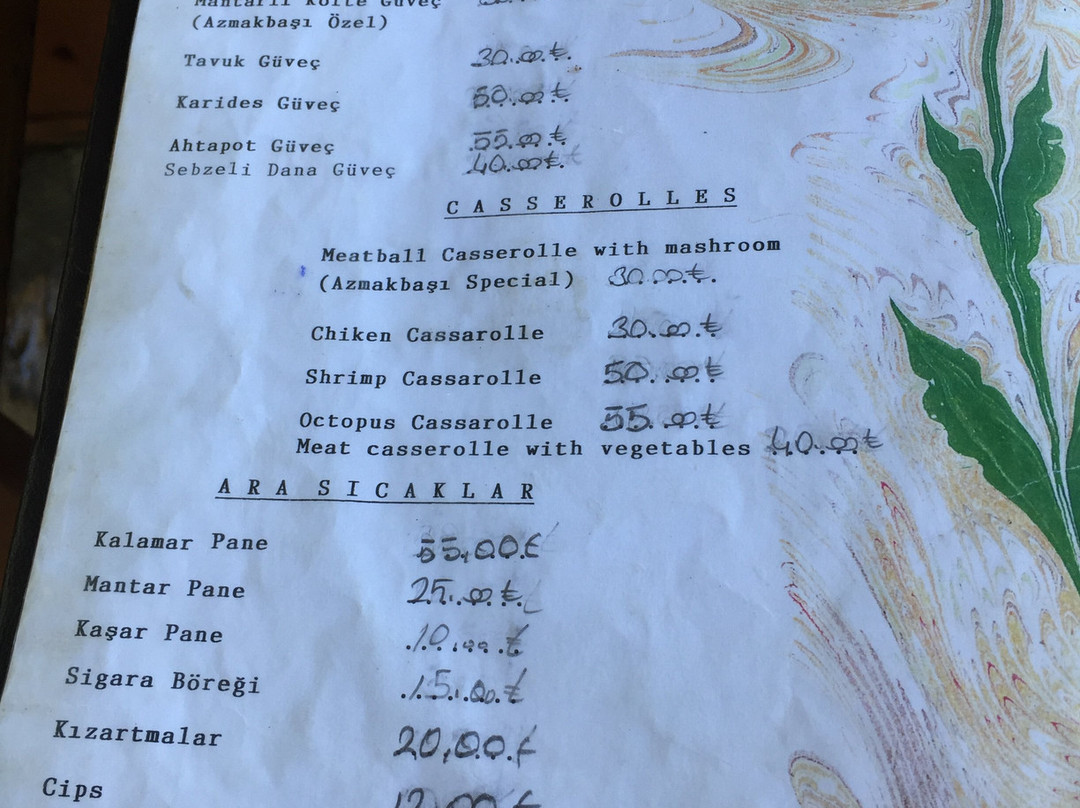 Mantarlı Köfte Güveç
(Azmakbaşı Özel)
Tavuk Güveç 30.00₺.
Karides Güveç 50.00₺
Ahtapot Güveç 55.00₺
Sebzeli Dana Güveç 40.00₺.
CASSEROLLES
Meatball Casserolle with mashroom
(Azmakbaşı Special) 30.00₺.
Chiken Cassarolle 30.00.₺
Shrimp Cassarolle 50.00₺
Octopus Cassarolle 55.00₺
Meat casserolle with vegetables 40.00₺
ARA SICAKLAR
Kalamar Pane 55,00₺
Mantar Pane 25.00₺
Kaşar Pane 10,00.₺
Sigara Böreği 15.00.₺
Kızartmalar 20,00.₺
Cips 12.00₺